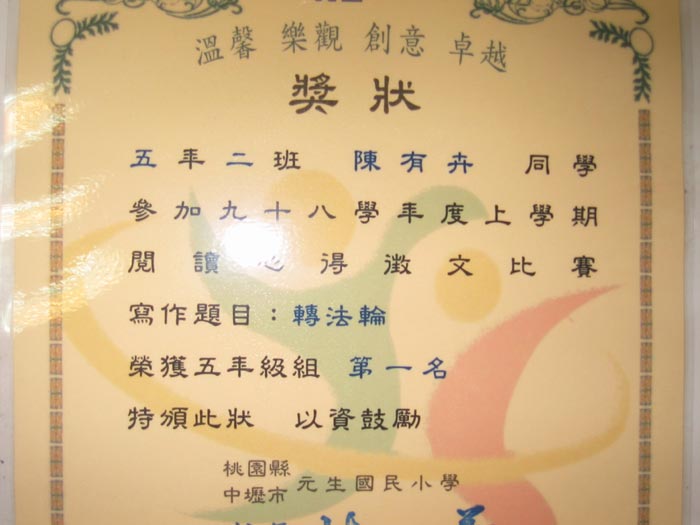 溫馨 樂觀 創意 卓越
獎狀
五年二班 陳有卉 同學
參加九十八學年度上學期
閱讀心得徵文比賽
寫作題目：轉法輪
榮獲五年級組 第一名
特頒此狀 以資鼓勵
桃園縣
中壢市 元生國民小學